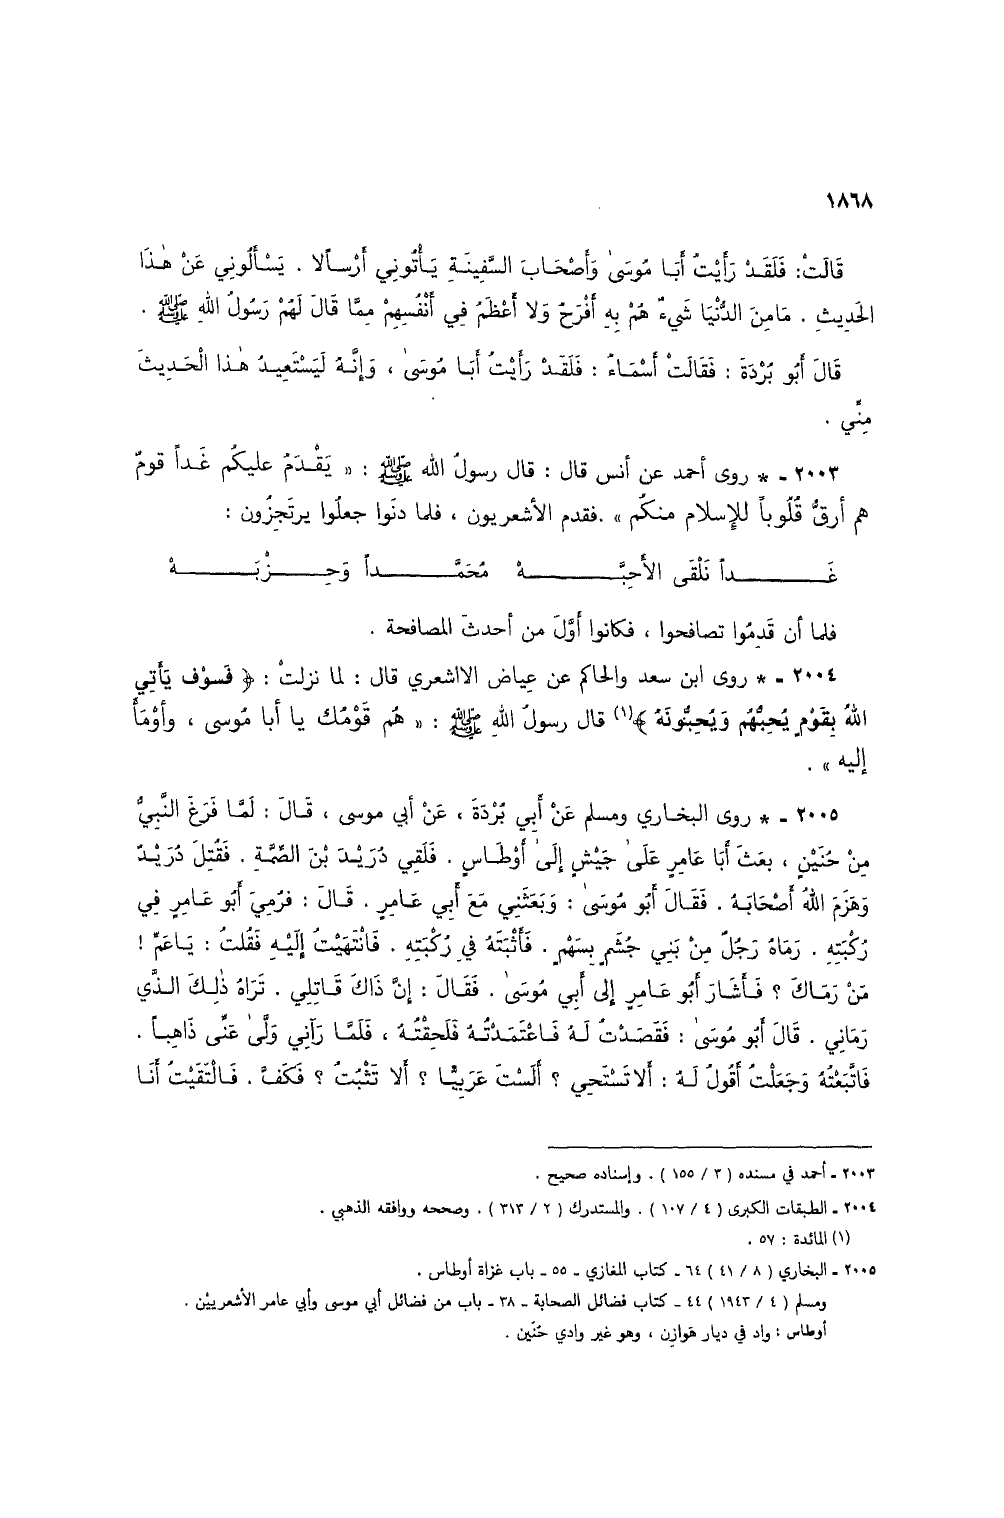 ١٨٦٨
قَالَتْ: فَلَقَدْ رَأَيْتُ أَبَا مُوسَىٰ وَأَصْحَابَ السَّفِينَةِ يَأْتُونِي أَرْسَالًا . يَسْأَلُونِي عَنْ هٰذَا
الحَدِيثِ . مَامِنَ الدُّنْيَا شَيءٌ هُمْ بِهِ أَفْرَحُ وَلَا أَعْظَمُ فِي أَنْفُسِهِمْ مِمَّا قَالَ لَهُمْ رَسُولُ اللهِ ﷺ .
قَالَ أَبُو بُرْدَةَ : فَقَالَتْ أَسْمَاءُ : فَلَقَدْ رَأَيْتُ أَبَا مُوسَىٰ ، وَإِنَّهُ لَيَسْتَعِيدُ هٰذا الْحَدِيثَ
مِنِّي .
٢٠٠٣ ـ * روى أحمد عن أنس قال : قال رسولُ الله ﷺ : « يَقْدَمُ عليكُم غَداً قومٌ
هم أرقُّ قُلُوباً للإسلام منكُم » .فقدم الأشعريون ، فلما دنَوا جعلُوا يرتَجِزُون :
غَــداً نَلْقى الأَحِبَّــهْ مُحَمَّــداً وَحِــزْبَــهْ
فلما أن قَدِمُوا تصافحوا ، فكانوا أوَّلَ من أحدثَ المصافحة .
٢٠٠٤ ـ * روى ابن سعد والحاكم عن عِياض الااشعري قال : لما نزلتْ : ﴿ فَسوْف يَأْتِي
اللهُ بِقَوْمٍ يُحِبُّهُم وَيُحِبُّونَهُ ﴾(١) قال رسولُ اللهِ ﷺ : « هُم قَوْمُك يا أبا مُوسى ، وأوْمَأ
إليه » .
٢٠٠٥ ـ * روى البخاري ومسلم عَنْ أَبِي بُرْدَةَ ، عَنْ أبي موسى ، قَالَ : لَمَّا فَرَغَ النَّبِيُّ
مِنْ حُنَيْنٍ ، بعَثَ أَبَا عَامِرٍ عَلَىٰ جَيْشٍ إِلَىٰ أَوْطَاسٍ . فَلَقِي دُرَيْدَ بْنَ الصِّمَّةِ . فَقُتِلَ دُرَيْدٌ
وَهَزَمَ اللهُ أَصْحَابَهُ . فَقَالَ أَبُو مُوسَىٰ : وَبَعَثَنِي مَعَ أَبِي عَامِرٍ . قَالَ : فَرُمِيَ أَبُو عَامِرٍ فِي
رُكْبَتِهِ . رَمَاهُ رَجُلٌ مِنْ بَنِي جُشَمٍ بِسَهْمٍ . فَأَثْبَتَهُ فِي رُكْبَتِهِ . فَانْتَهَيْتُ إِلَيْهِ فَقُلتُ : يَاعَمِّ !
مَنْ رَمَاكَ ؟ فَأَشَارَ أَبُو عَامِرٍ إِلى أَبي مُوسَىٰ . فَقَالَ : إِنَّ ذَاكَ قَاتِلِي . تَرَاهُ ذٰلِكَ الَّذي
رَمَانِي . قَالَ أَبُو مُوسَىٰ : فَقَصَدْتُ لَهُ فَاعْتَمَدْتُهُ فَلَحِقْتُهُ ، فَلَمَّا رَآنِي وَلَّىٰ عَنِّى ذَاهِباً .
فَاتَّبَعْتُهُ وَجَعَلْتُ أَقُولُ لَهُ : أَلاتَسْتَحِي ؟ أَلَسْتَ عَرَبِيًّا ؟ أَلا تَثْبُتُ ؟ فَكَفَّ . فَالْتَقَيْتُ أَنَا
٢٠٠٣ ـ أحمد في مسنده ( ٣ / ١٥٥ ) . وإسناده صحيح .
٢٠٠٤ ـ الطبقات الكبرى ( ٤ / ١٠٧ ) . والمستدرك ( ٢ / ٣١٣ ) . وصححه ووافقه الذهبي .
(١) المائدة : ٥٧ .
٢٠٠٥ ـ البخاري ( ٨ / ٤١ ) ٦٤ ـ كتاب المغازي ـ ٥٥ ـ باب غزاة أوطاس .
ومسلم ( ٤ / ١٩٤٣ ) ٤٤ ـ كتاب فضائل الصحابة ـ ٣٨ ـ باب من فضائل أبي موسى وأبي عامر الأشعريين .
أوطاس : واد في ديار هَوازِن ، وهو غير وادي حُنَين .